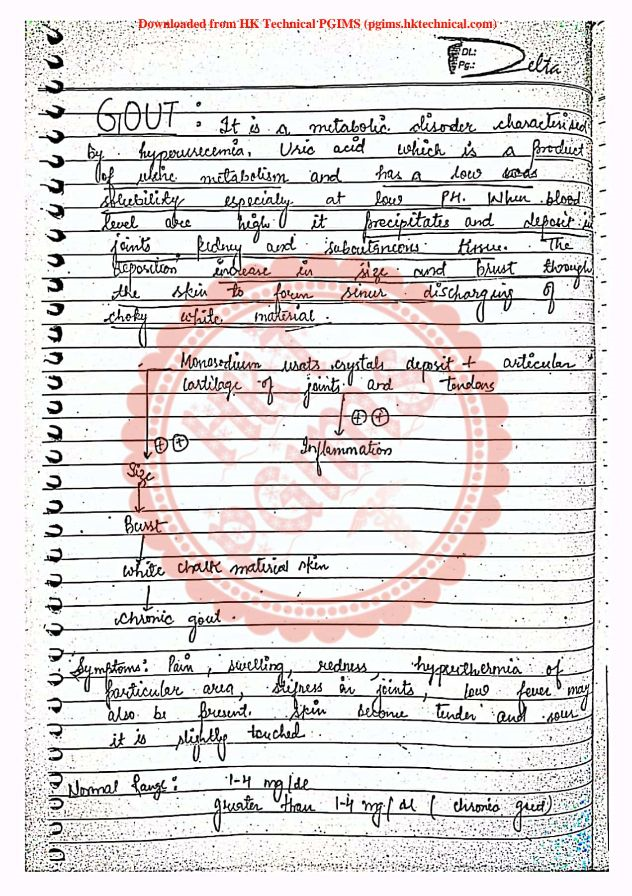 Downloaded from HK Technical PGIMS (pgims.hktechnical.com)
DL:
Pg.:
Delta
GOUT : It is a metabolic disoder characterised
by hyperurecemia, Uric acid which is a product
of urine metabolism and has a low
solubility especialy at low PH. When blood
level are high it precipitates and deposit in
joints kidney and subcutaneous tissue. The
deposition increase in size and brust through
the skin to form sinus discharging of
choky white material.
Monosodium urats crystals deposit + articular
cartilage of joints and tendons
⊕ ⊕
⊕ ⊕
Inflammation
Size
Burst
white chalk material skin
chronic gout.
Symptoms: Pain, swelling, redness, hyperthermia of
particular area, stifness in joints, low fever may
also be present. Skin become tender and sour
it is slightly touched
Normal Range: 1-4 mg/dl
greater than 1-4 mg/dl (chronic
HKT
PGIMS